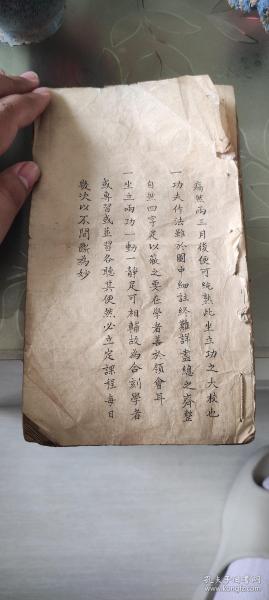 殤然兩三月後便可純熟此坐立功之大較也
一功夫作法雖於圖中細註終難詳盡總之齊整
自然四字足以蔽之要在學者善於領會耳
一坐立兩功一動一靜足可相輔故為合刻學者
或專習或並習各聽其便然必立定課程每日
幾次以不間斷為妙
孔夫子旧书网